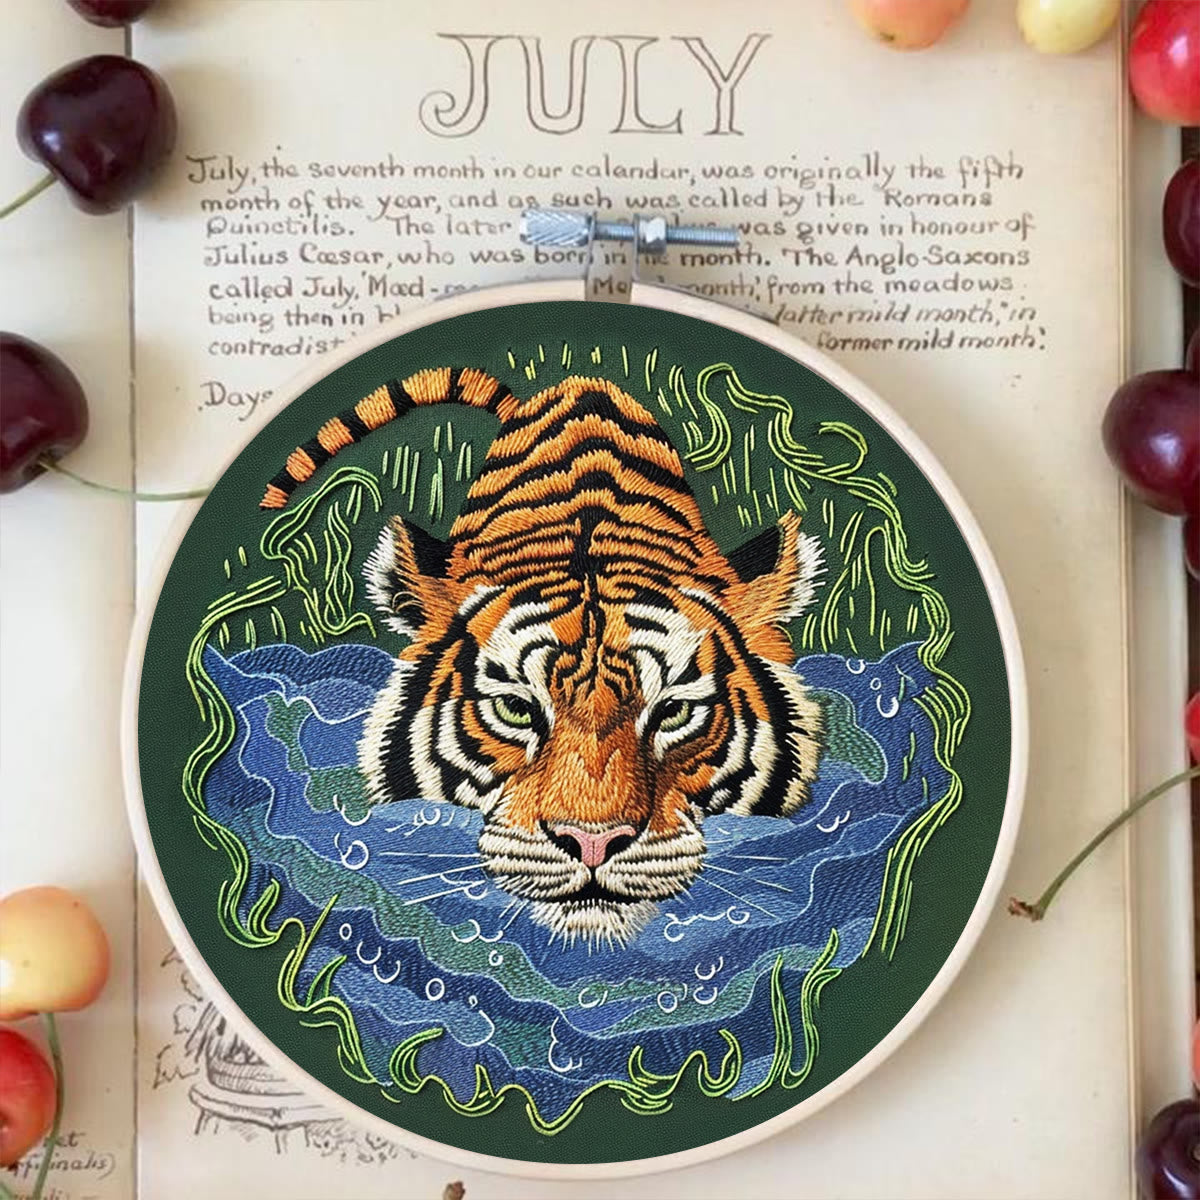 JULY
July, the seventh month in our calendar, was originally the fifth
month of the year, and as such was called by the Romans
Quinctilis. The later was given in honour of
Julius Cæsar, who was born in month. The Anglo-Saxons
called July, 'Mæd- month', from the meadows
being then in latter mild month," in
former mild month'.
Days